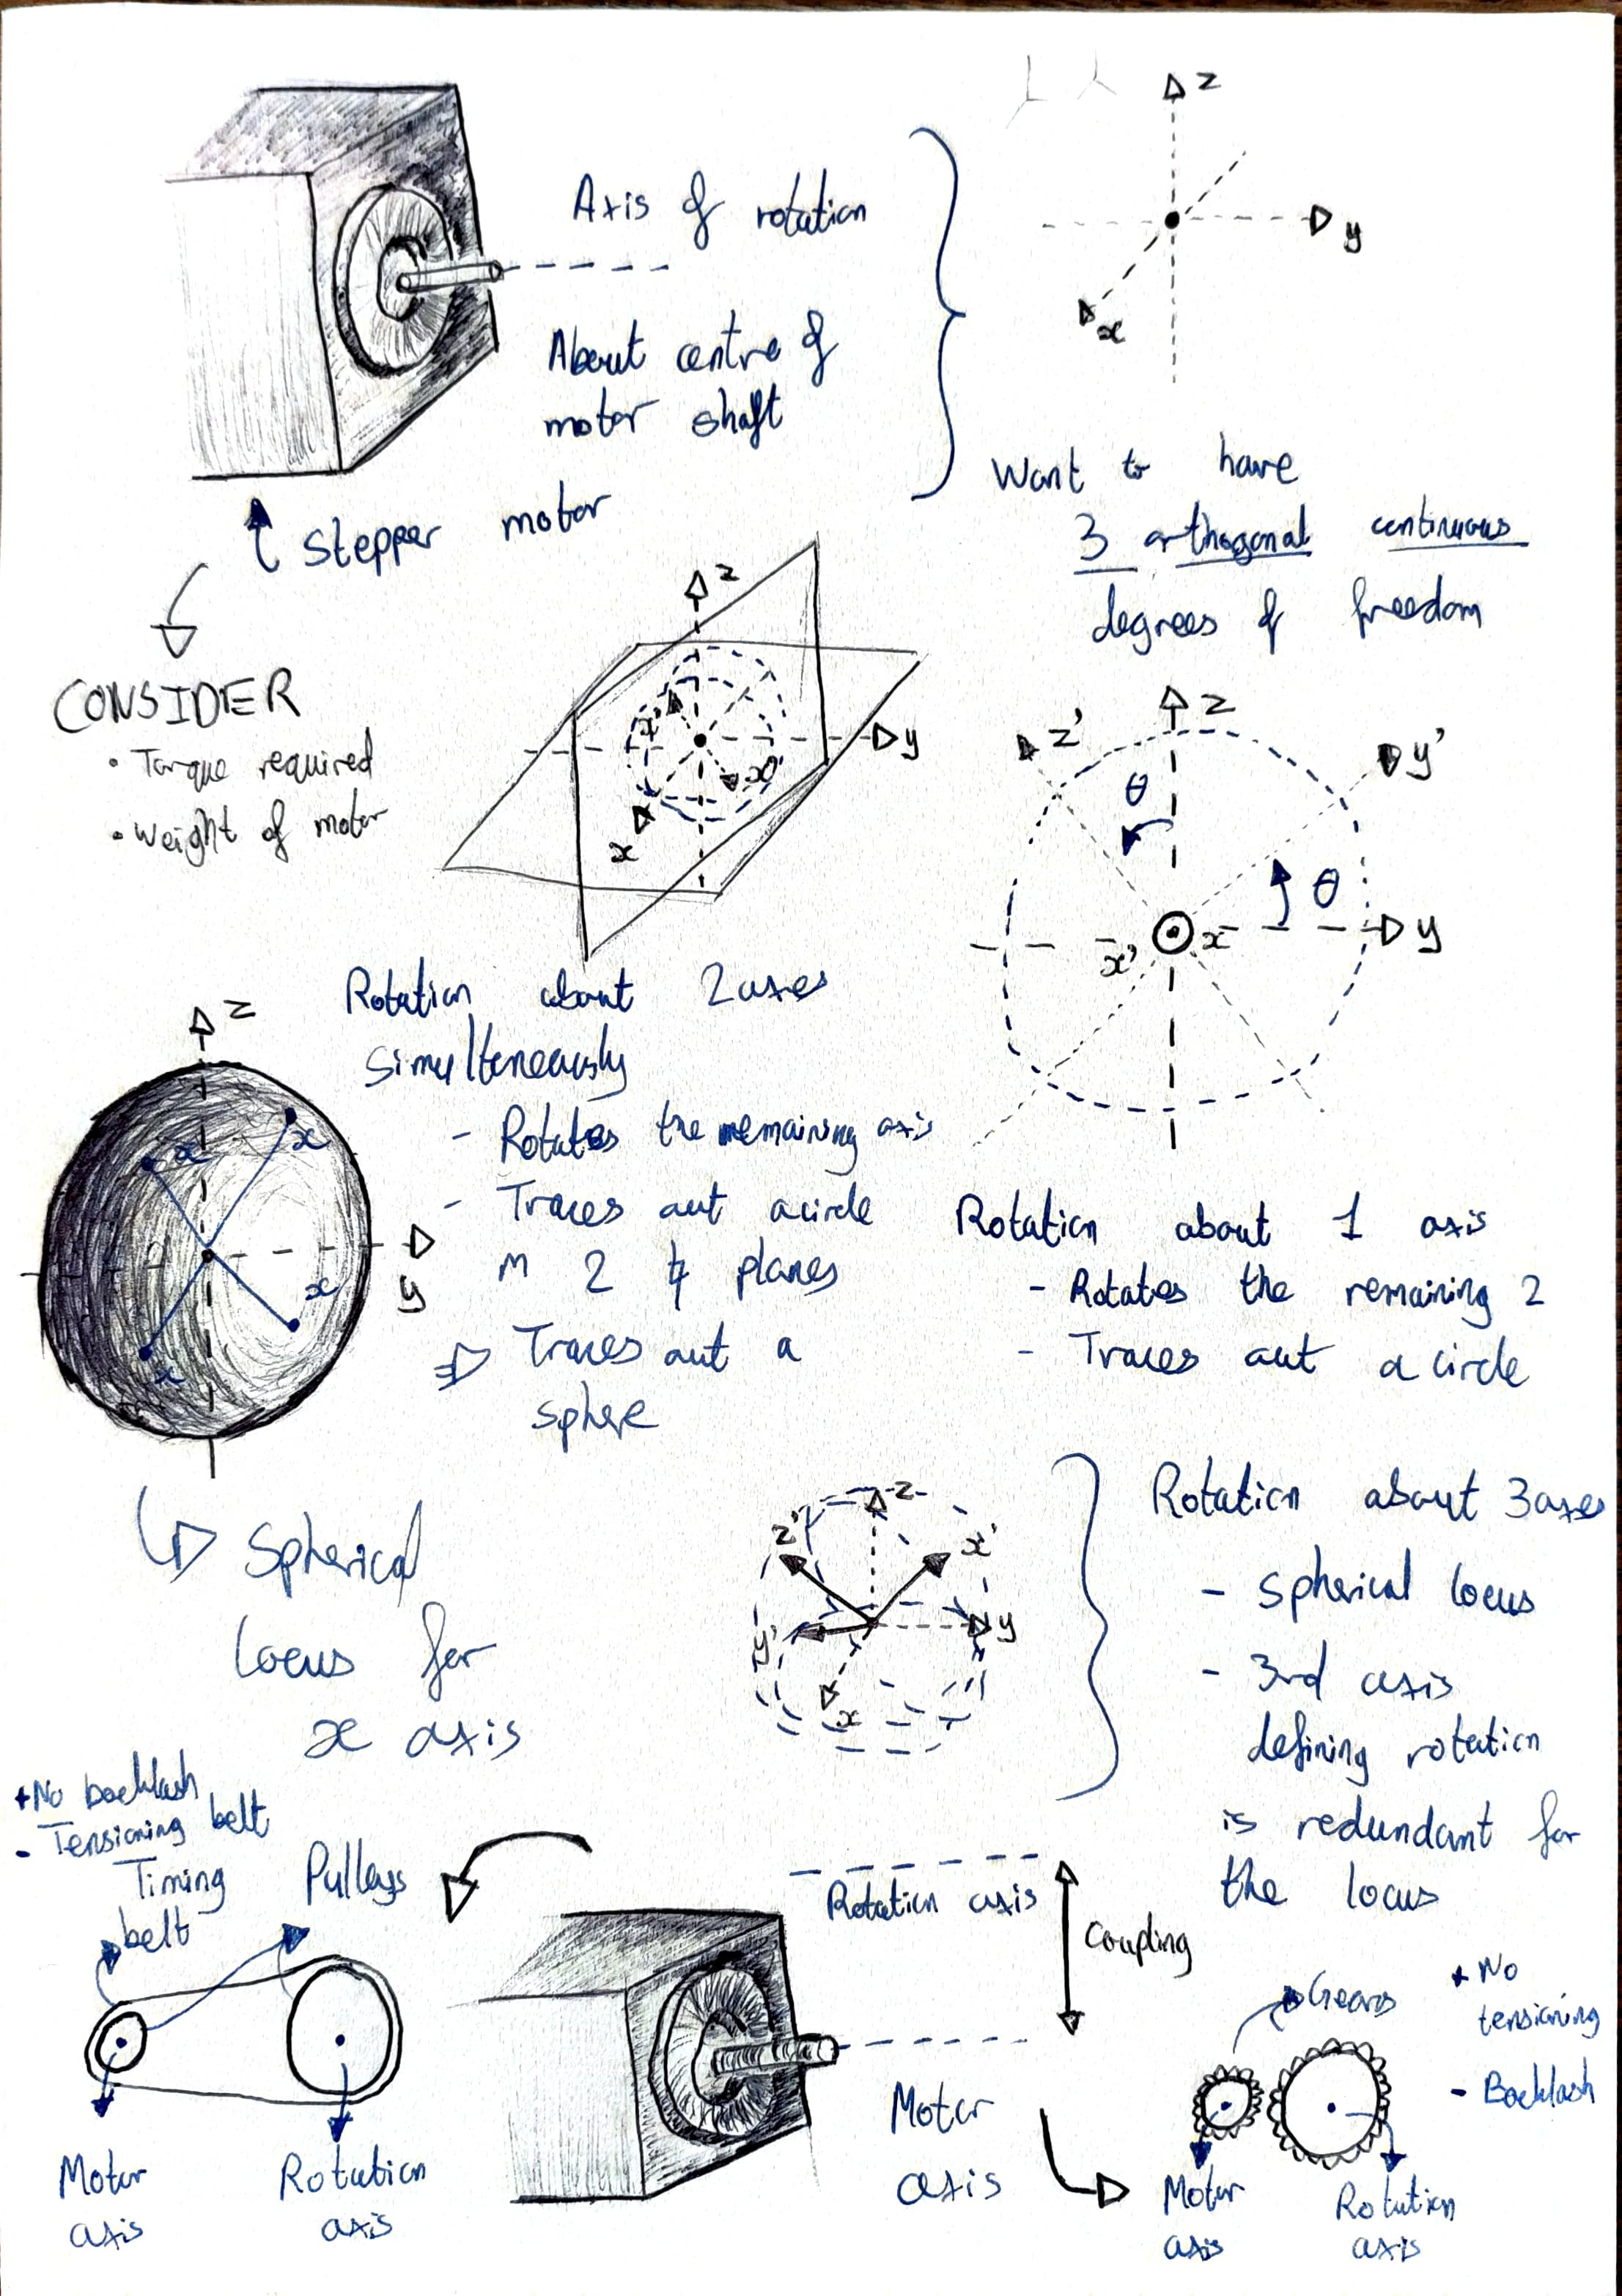 z
y
x
Axis of rotation
About centre of
motor shaft
Stepper motor
Want to have
3 orthogonal continuous
degrees of freedom
CONSIDER
• Torque required
• Weight of motor
z
y
x
x'
x'
z
z'
y'
θ
θ
y
x'
x
Rotation about 2 axes
simulteneously
- Rotates the remaining axis
- Traces out a circle
in 2 ≠ planes
⇒ Traces out a
sphere
z
x
x
y
x
x
Rotation about 1 axis
- Rotates the remaining 2
- Traces out a circle
Spherical
locus for
x axis
z
z'
x'
y'
y
x
Rotation about 3 axes
- Spherical locus
- 3rd axis
defining rotation
is redundant for
the locus
+ No backlash
- Tensioning belt
Timing
belt
Pulleys
Motor
axis
Rotation
axis
Rotation axis
Coupling
Motor
axis
Gears
+ No
tensioning
- Backlash
Motor
axis
Rotation
axis